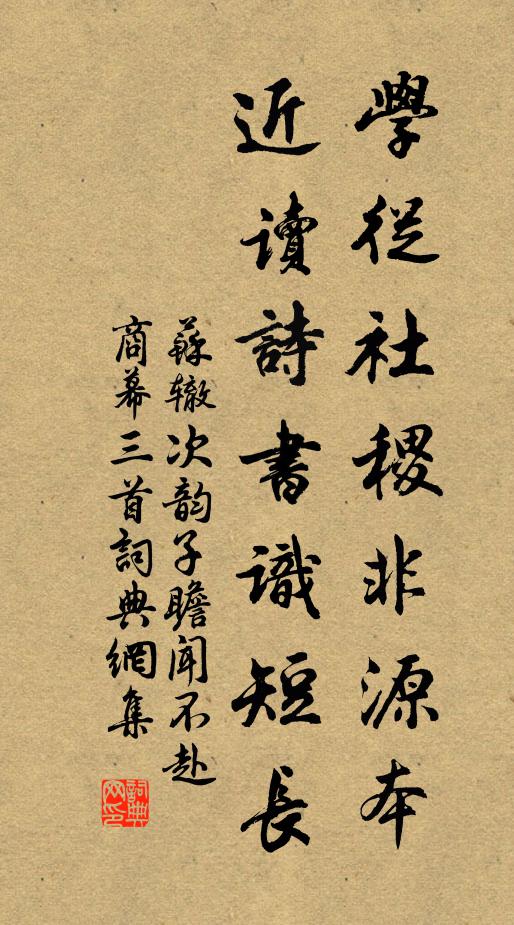 學從社稷非源本
近讀詩書識短長
蘇辙次韵子瞻闻不赴
商幕三首詞典網集
詞典网印